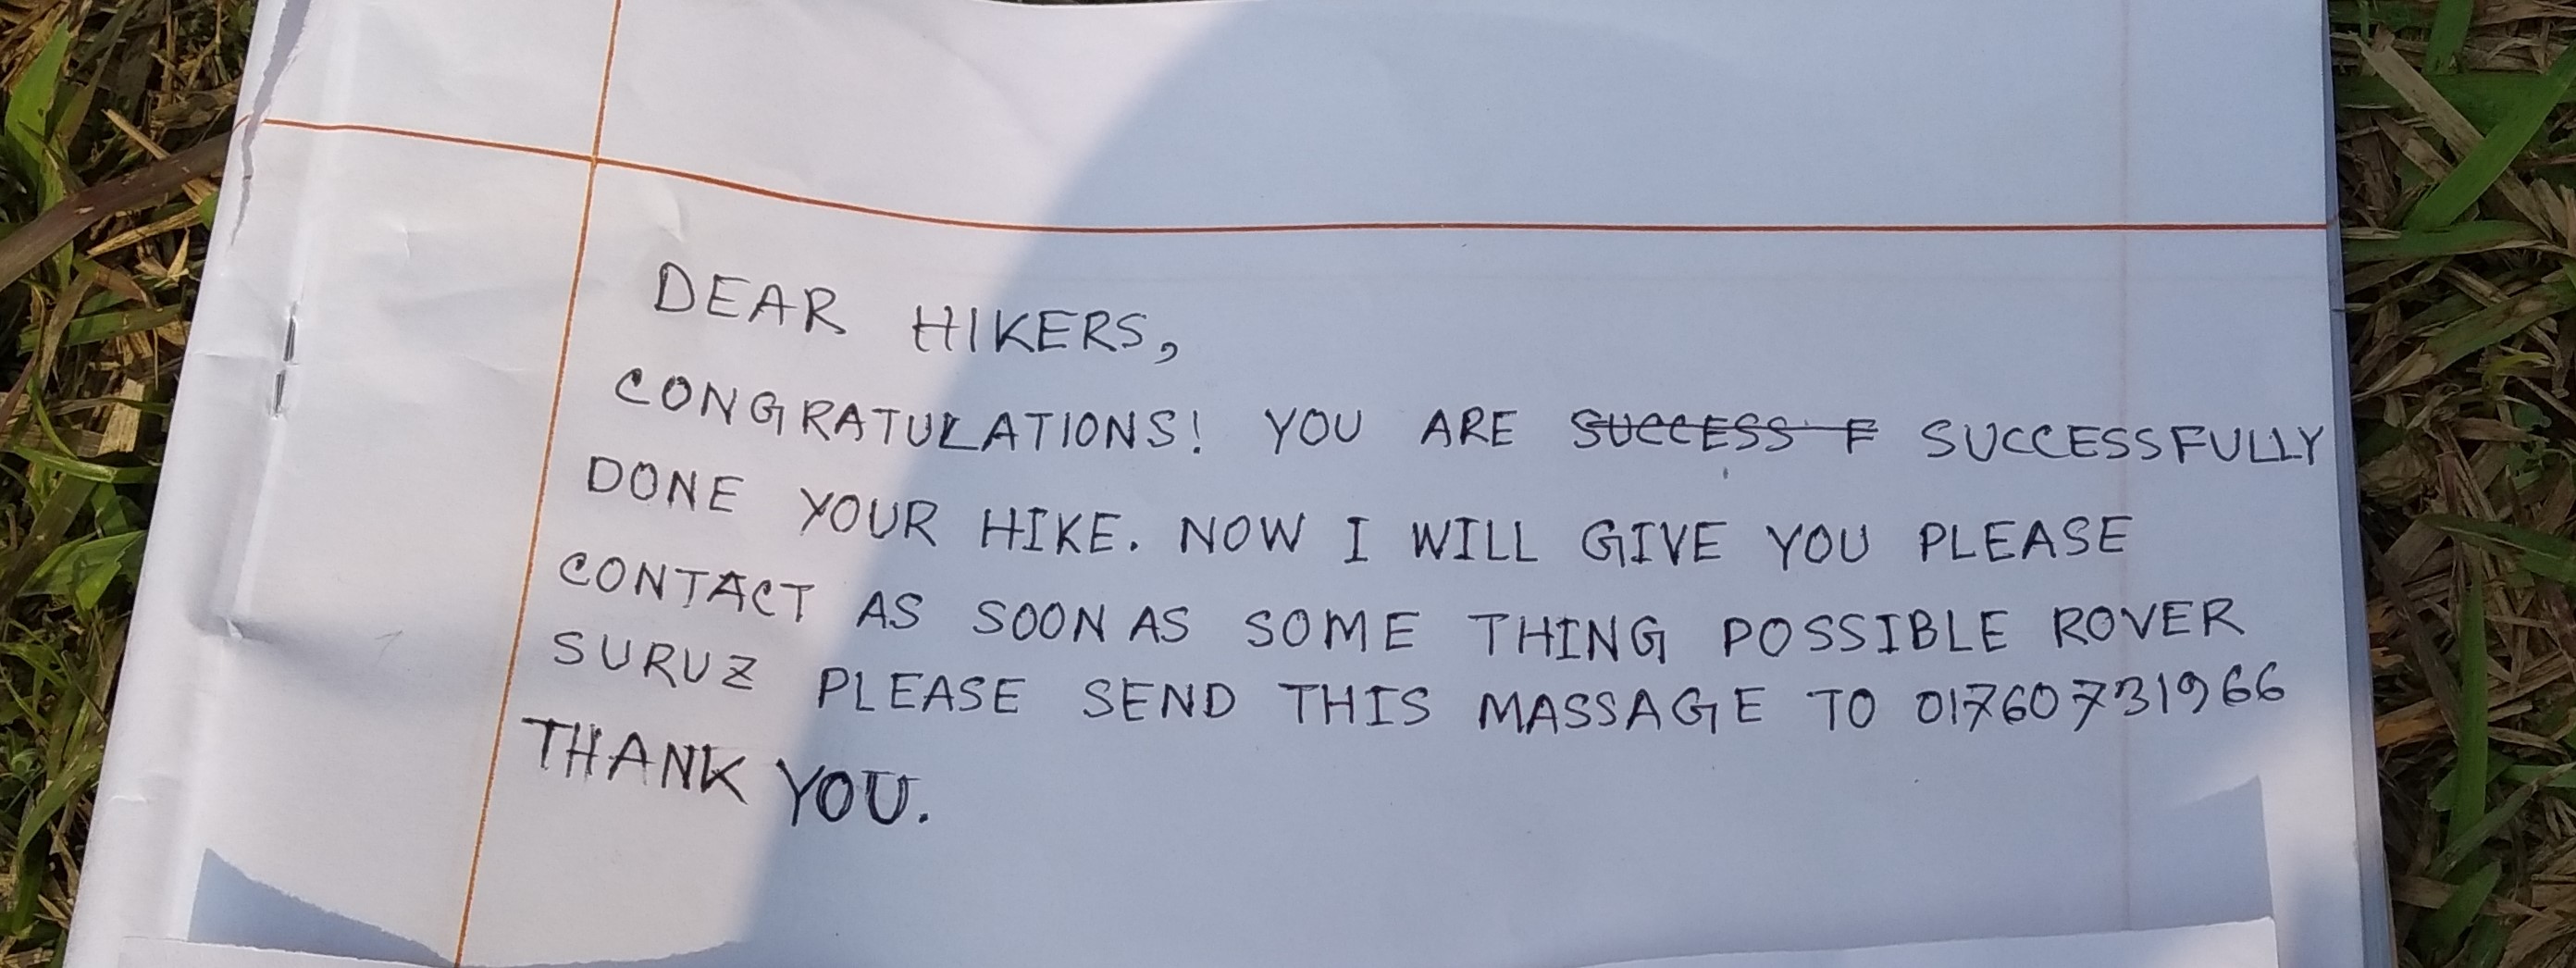 DEAR HIKERS,
CONGRATULATIONS! YOU ARE SUCCESS F SUCCESSFULLY
DONE YOUR HIKE. NOW I WILL GIVE YOU PLEASE
CONTACT AS SOON AS SOME THING POSSIBLE ROVER
SURUZ PLEASE SEND THIS MASSAGE TO 01760731966
THANK YOU.